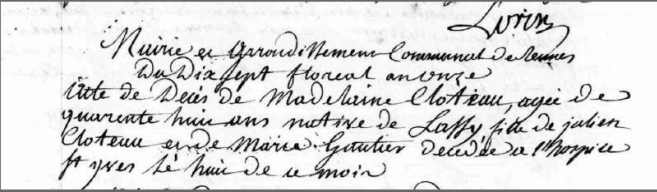 Lorin
Mairie et Arrondissement Communal de Rennes
Du Dix sept floreal an onze
acte de Decés de Madelaine Cloteau, agée de
quarente huit ans native de Laffy fille de julien
Cloteau et de Marie Gautier decedée a l'hospice
st yves le huit de ce mois